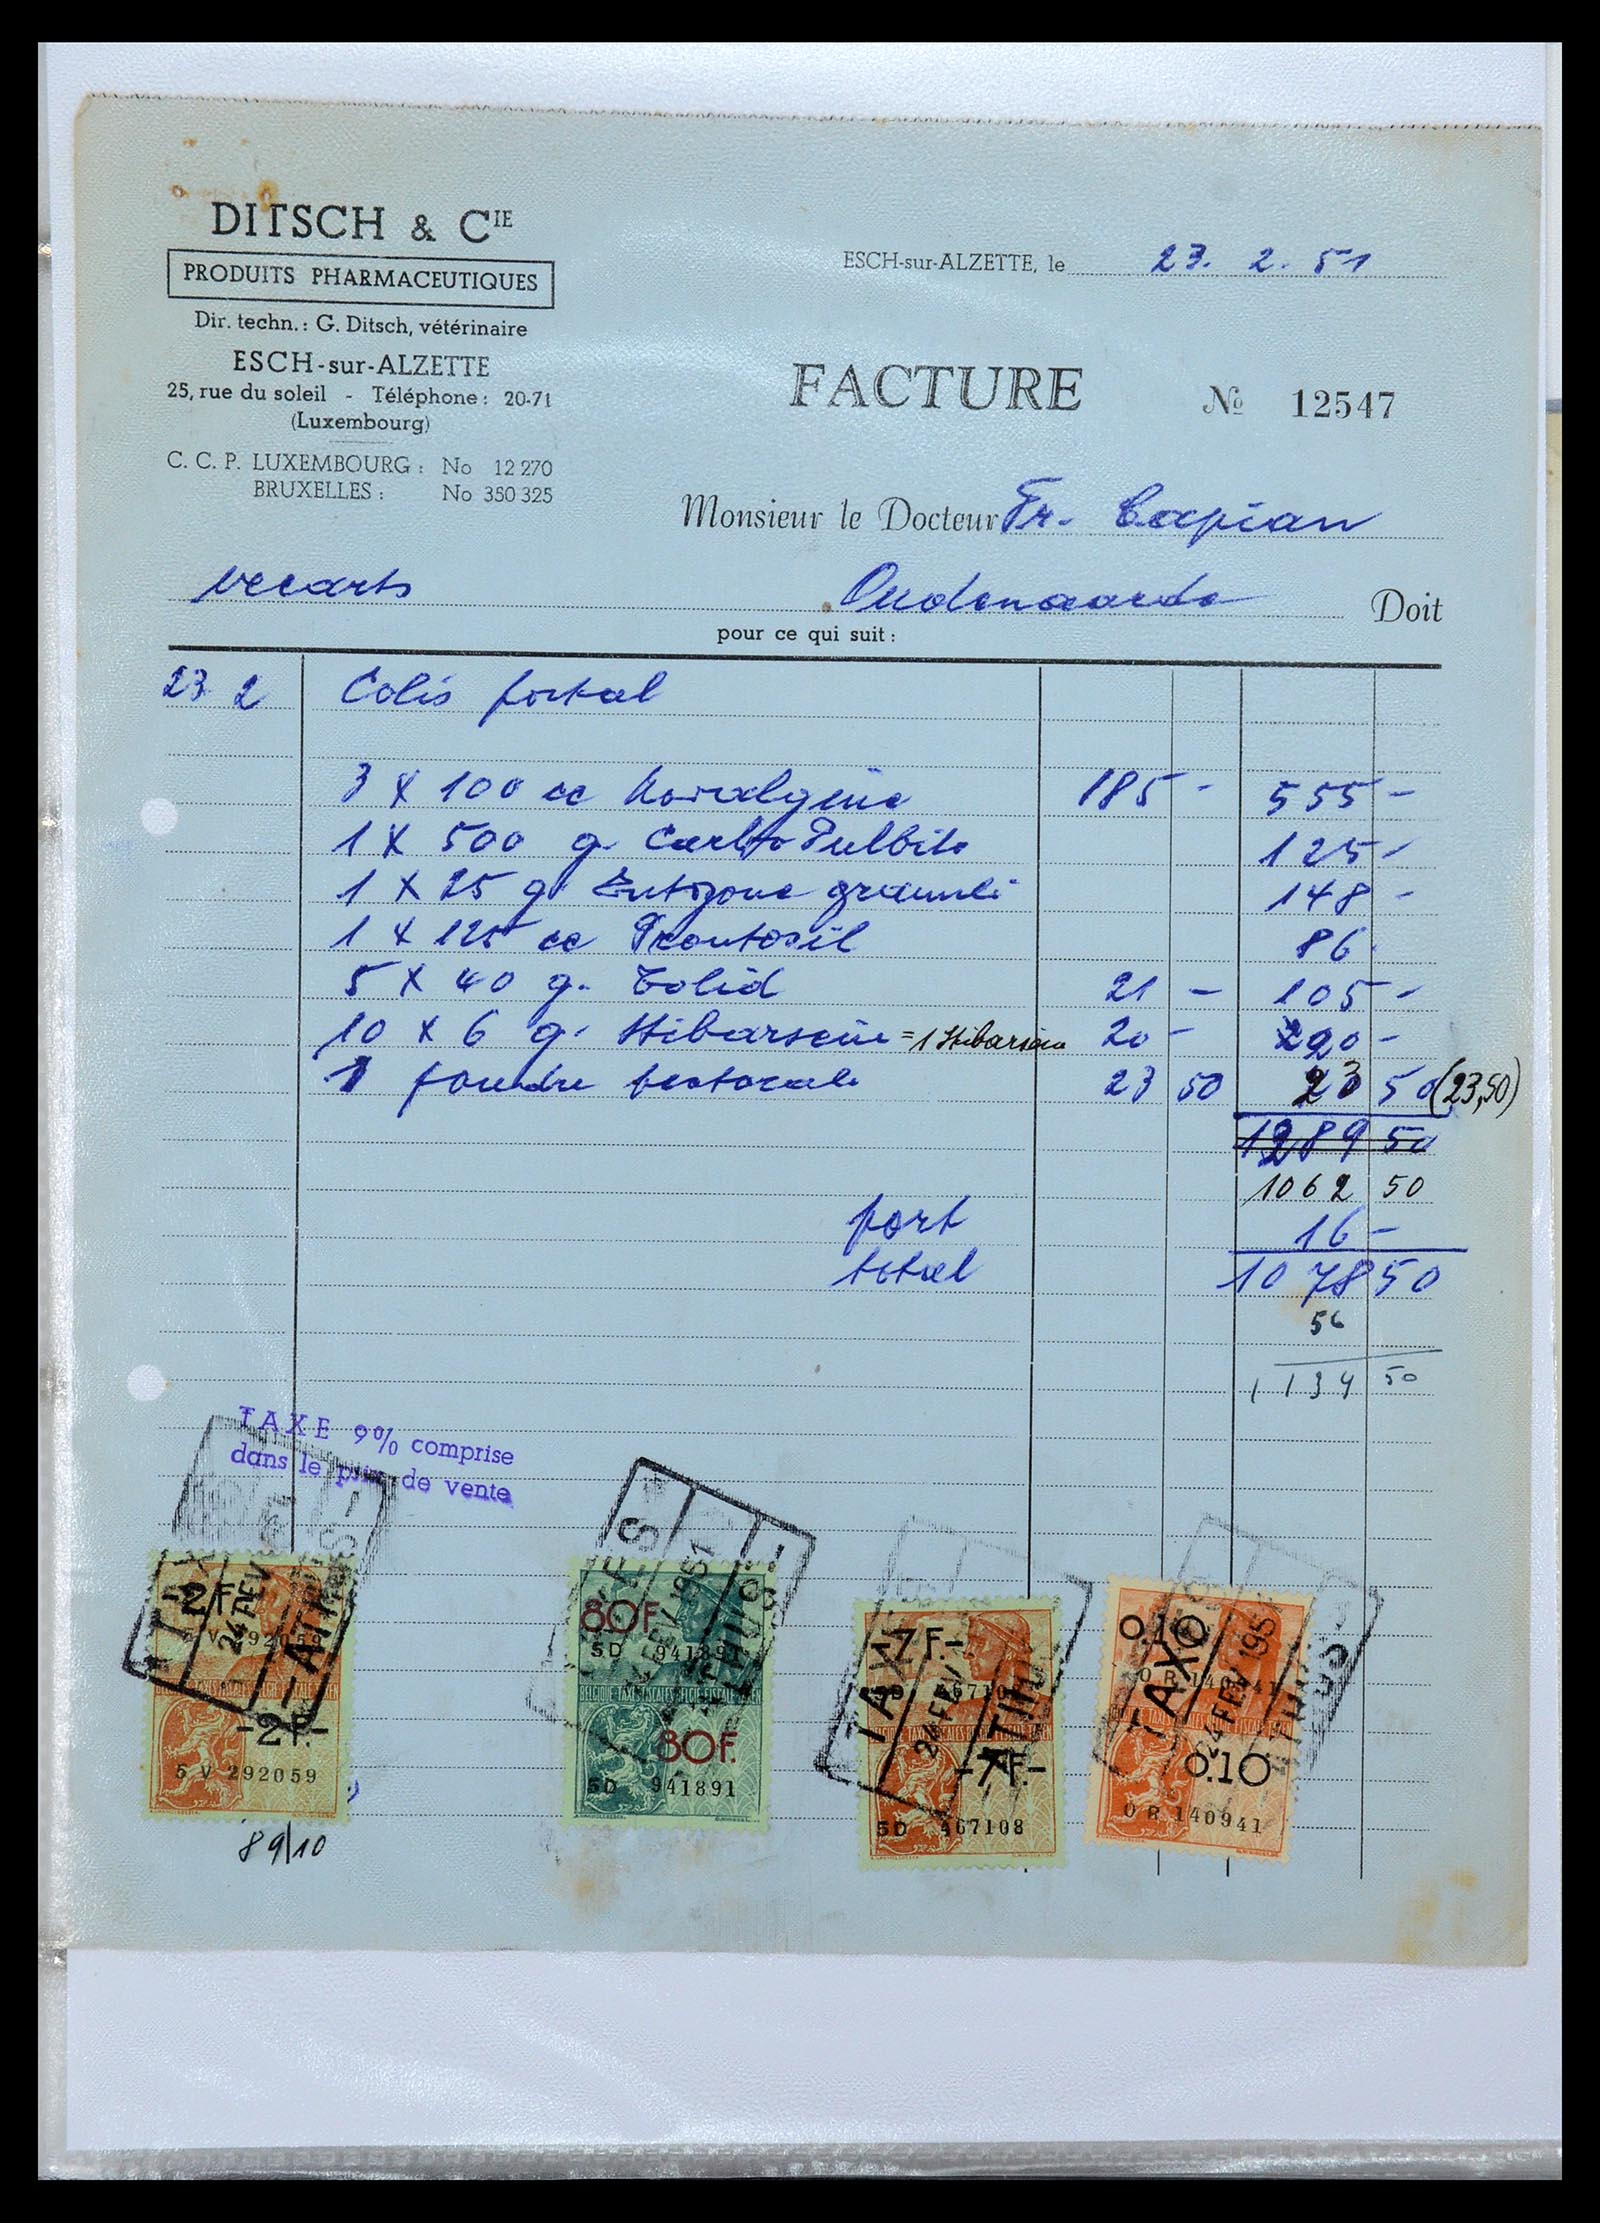 DITSCH & CIE
PRODUITS PHARMACEUTIQUES
Dir. techn.: G. Ditsch, vétérinaire
ESCH-sur-ALZETTE
25, rue du soleil - Téléphone: 20-71
(Luxembourg)
C. C. P. LUXEMBOURG: No 12 270
BRUXELLES: No 350 325
ESCH-sur-ALZETTE, le 23. 2. 51
FACTURE № 12547
Monsieur le Docteur Fr. Capian
Oudenaarde Doit
pour ce qui suit:
23. 2 Colis postal
3 x 100 cc Novalgine 185 - 555 -
1 x 500 g. Carbo 125 -
1 x 25 g. 148 -
1 x 125 cc Prontosil 86
5 x 40 g. Tolid 21 - 105 -
10 x 6 g. Stibarseine = 1 Stibarsein 20 - 20 -
1 poudre pectorale 23 50 23 50 (23,50)
1289 50
1062 50
port 16 -
total 1078 50
56
1134 50
TAXE 9% comprise
dans le prix de vente
-2F.-
5 V 292059
-2F.-
5 V 292059
89/10
80F.
5D 941891
BELGIQUE-TAXES FISCALES-BELGIE-FISCALE ZEGEN
80F.
5D 941891
TAX
24 FEV
-7F.-
-7F.-
5D 467108
TAX
24 FEV 1951
0.10
0 R 140941
0.10
0 R 140941